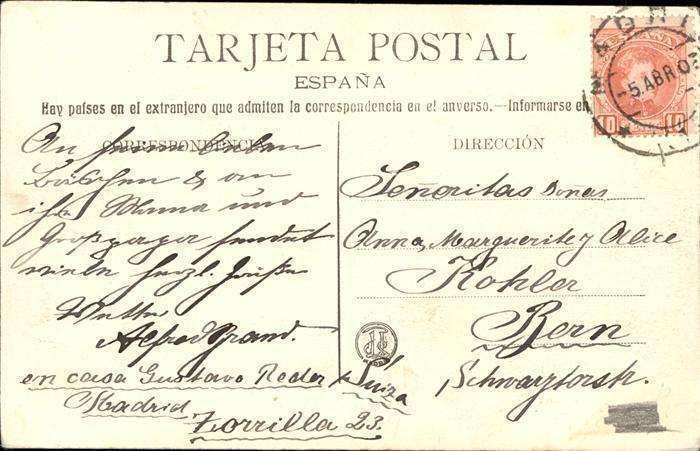 TARJETA POSTAL
ESPAÑA
Hay países en el extranjero que admiten la correspondencia en el anverso.—Informarse en
CORRESPONDENCIA
An seine lieben
Bäschen & an
ihre Mama und
Grosspapa sendet
viele herzl. Grüße
Vetter
Alfred Brand.
en casa Gustavo Reder
Madrid
Zorrilla 23.
DIRECCIÓN
Señoritas Donas
Anna, Marguerite y Alice
Kohler
Bern
Suiza
Schwarztorstr.
MADRID
5 ABR 0
ESPAÑA
10 10